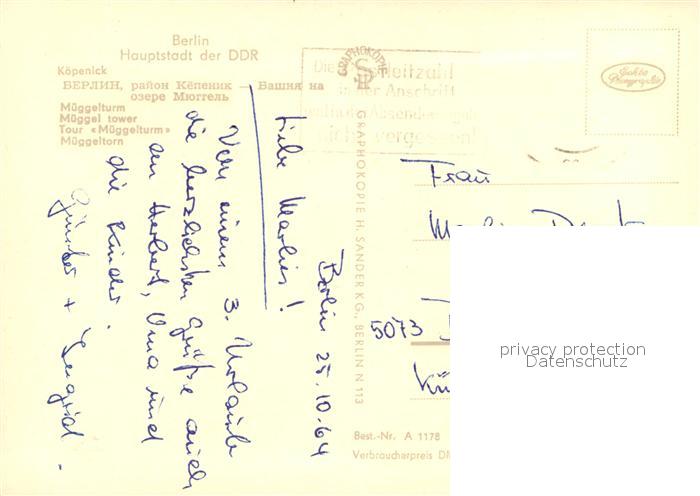 Berlin
Hauptstadt der DDR
Köpenick
БЕРЛИН, район Кёпеник — Башня на
озере Мюггель
Müggelturm
Müggel tower
Tour «Müggelturm»
Müggeltorn
Berlin 25.10.64
Liebe Marlies!
Von einem 3. Urlaub
die herzlichsten Grüße auch
an Herbert, Oma und
die Kinder.
Günter +
GRAPHOKOPIE
GRAPHOKOPIE H. SANDER KG., BERLIN N 113
Die Postleitzahl
in der Anschrift
und der Absenderangabe
nicht vergessen!
Echte
Photographie
Frau
5073
Best.-Nr. A 1178
Verbraucherpreis DM
privacy protection
Datenschutz